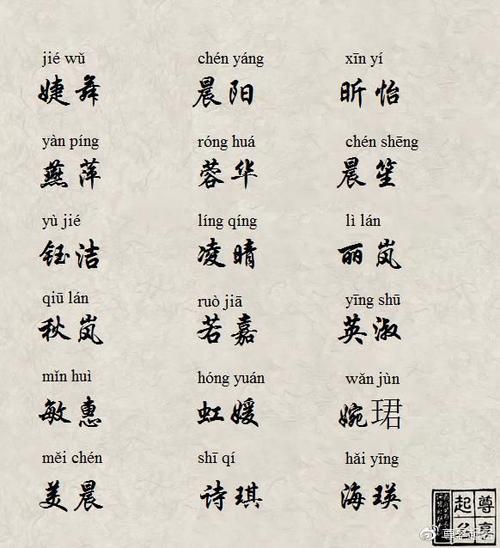 jié wǔ chén yáng xīn yí
婕舞 晨阳 昕怡
yàn píng róng huá chén shēng
燕萍 蓉华 晨笙
yù jié líng qíng lì lán
钰洁 凌晴 丽岚
qiū lán ruò jiā yīng shū
秋岚 若嘉 英淑
mǐn huì hóng yuán wǎn jùn
敏惠 虹媛 婉珺
měi chén shī qí hǎi yīng
美晨 诗琪 海瑛
尊享
起名